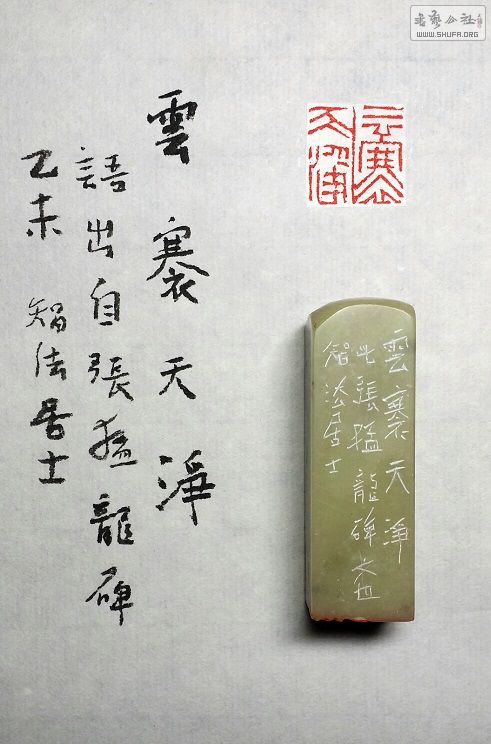 書藝公社
WWW.SHUFA.ORG
云褰
天淨
雲褰天淨
語出自張猛龍碑
乙未 智法居士
雲褰天淨
此張猛龍碑文也
智法居士